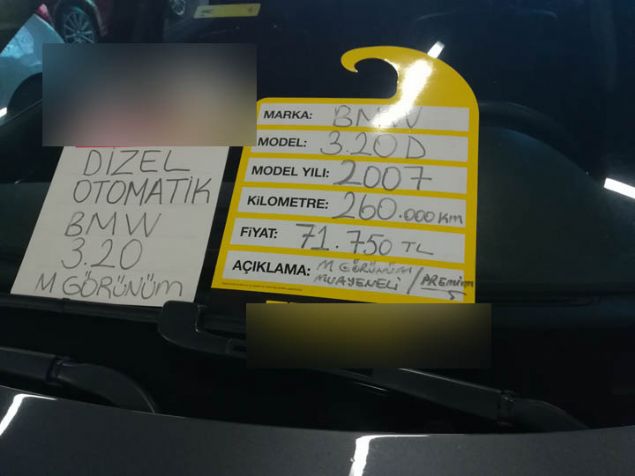 DİZEL
OTOMATİK
BMW
3.20
M GÖRÜNÜM
MARKA: BMW
MODEL: 3.20 D
MODEL YILI: 2007
KİLOMETRE: 260.000 Km
FİYAT: 71.750 TL
AÇIKLAMA: M GÖRÜNÜM
MUAYENELİ / PREMİUM